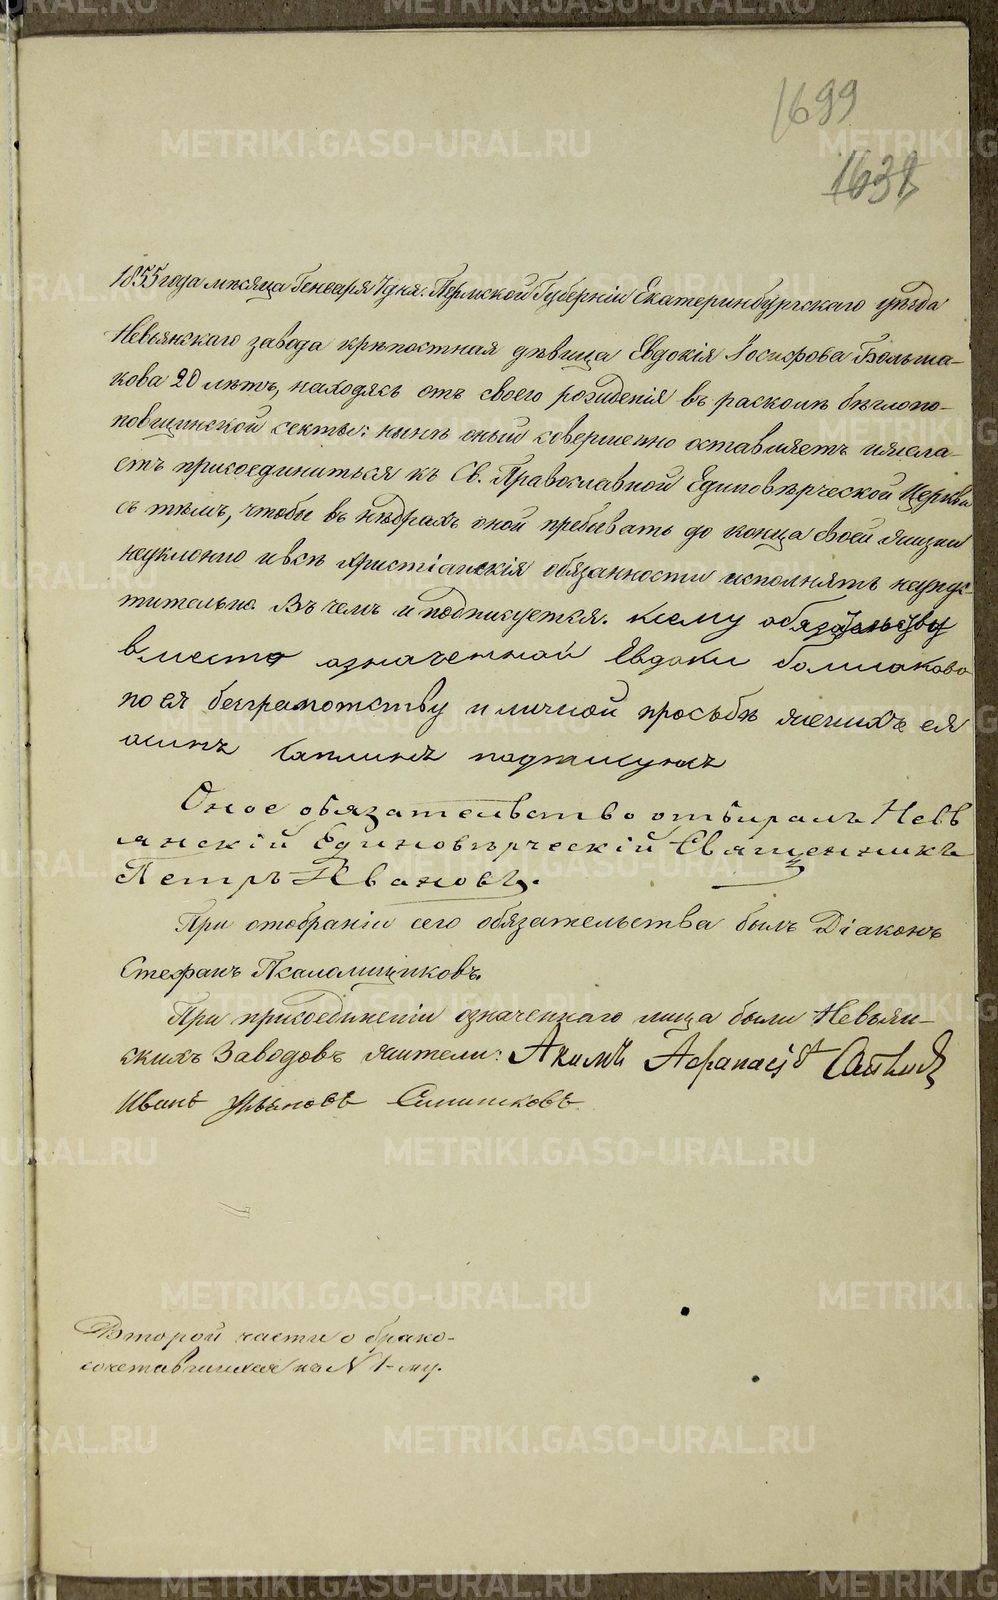 1699
1638
1855 года мѣсяца Генваря 7 дня. Пермской Губерніи Екатеринбургскаго уѣзда
Невьянскаго завода крѣпостная дѣвица Евдокія Іосифова Больша-
кова 20 лѣтъ, находясь отъ своего рожденія въ расколѣ бѣглопо-
повщинской секты: нынѣ оный совершенно оставляетъ и жела-
етъ присоединиться къ Св. Православной Единовѣрческой Церкви
съ тѣмъ, чтобы въ нѣдрахъ оной пребывать до конца своей жизни
неуклонно и всѣ христіанскія обязанности исполнять неупус-
тительно. Въ чемъ и подпискуется. К сему обязательству
вместо означенной Евдоки болшакова
по ея безграмотству и личной просьбѣ женихъ ея
подписуюсъ
Оное обязательство отбиралъ Невь
янскій Единовѣрческій Священникъ
Петръ Ивановъ.
При отобраніи сего обязательства былъ Діаконъ
Стефанъ Псаломщиковъ.
При присоединеніи означеннаго лица были Невьян-
скихъ Заводовъ жители: Акимъ Афанасіевъ
Иванъ Ульяновъ
Второй части о брако-
сочетавшихся на № 1-му.
METRIKI.GASO-URAL.RU